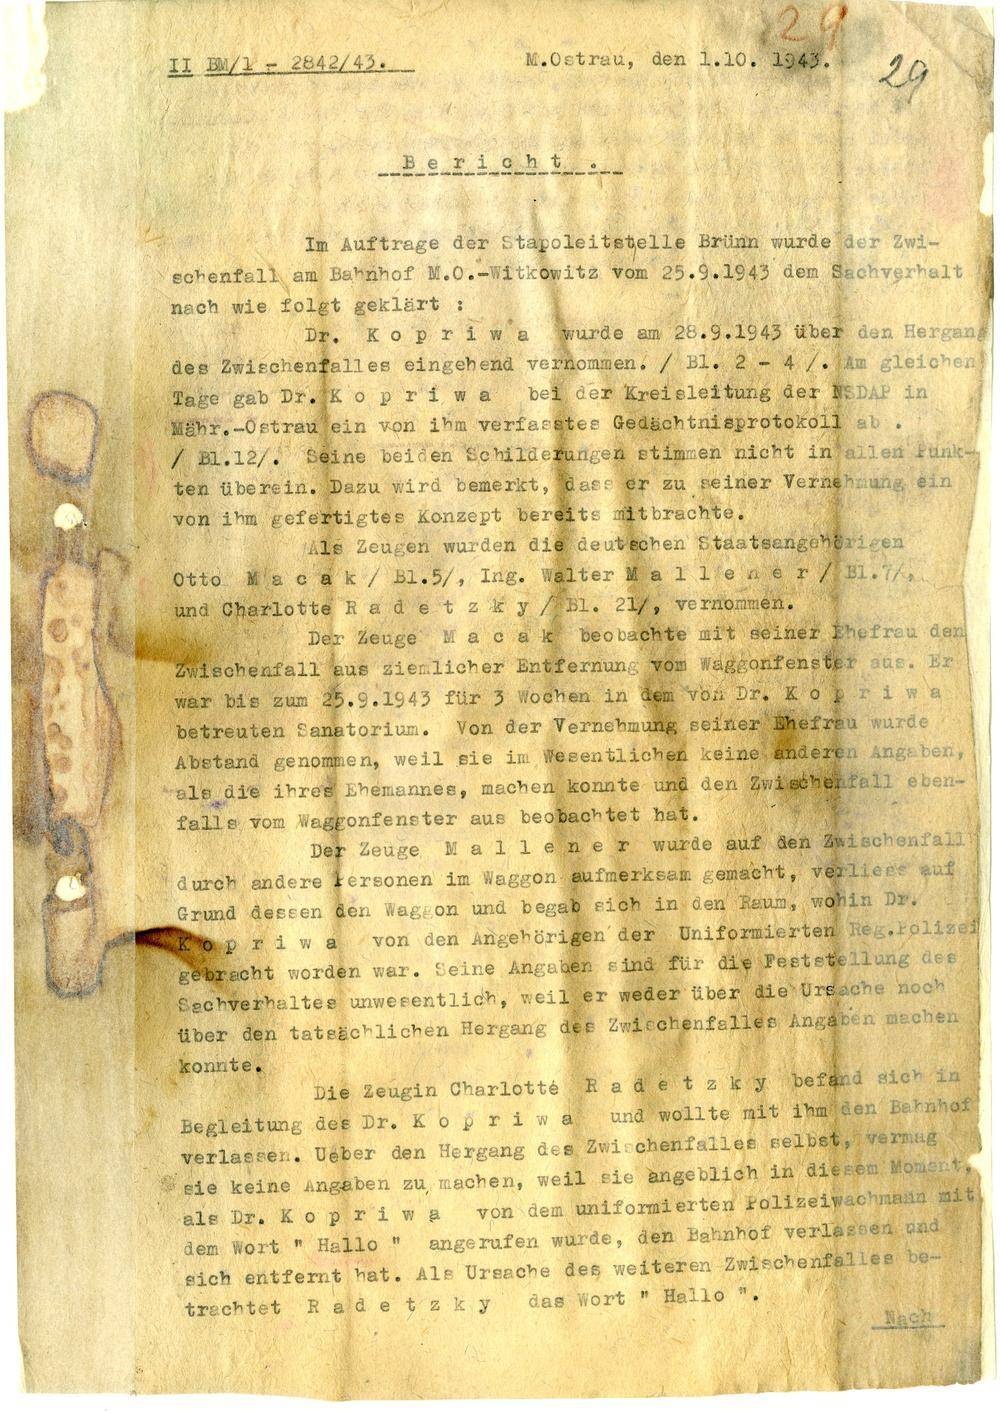 29
II BM/1 - 2842/43. M.Ostrau, den 1.10. 1943.
29
B e r i c h t .
Im Auftrage der Stapoleitstelle Brünn wurde der Zwi-
schenfall am Bahnhof M.O.-Witkowitz vom 25.9.1943 dem Sachverhalt
nach wie folgt geklärt :
Dr. K o p r i w a wurde am 28.9.1943 über den Hergang
des Zwischenfalles eingehend vernommen. / Bl. 2 - 4 /. Am gleichen
Tage gab Dr. K o p r i w a bei der Kreisleitung der NSDAP in
Mähr.-Ostrau ein von ihm verfasstes Gedächtnisprotokoll ab .
/ Bl.12/. Seine beiden Schilderungen stimmen nicht in allen Punk-
ten überein. Dazu wird bemerkt, dass er zu seiner Vernehmung ein
von ihm gefertigtes Konzept bereits mitbrachte.
Als Zeugen wurden die deutschen Staatsangehörigen
Otto M a c a k / Bl.5/, Ing. Walter M a l l e n e r / Bl.7/,
und Charlotte R a d e t z k y / Bl. 21/, vernommen.
Der Zeuge M a c a k beobachte mit seiner Ehefrau den
Zwischenfall aus ziemlicher Entfernung vom Waggonfenster aus. Er
war bis zum 25.9.1943 für 3 Wochen in dem von Dr. K o p r i w a
betreuten Sanatorium. Von der Vernehmung seiner Ehefrau wurde
Abstand genommen, weil sie im Wesentlichen keine anderen Angaben,
als die ihres Ehemannes, machen konnte und den Zwischenfall eben-
falls vom Waggonfenster aus beobachtet hat.
Der Zeuge M a l l e n e r wurde auf den Zwischenfall
durch andere Personen im Waggon aufmerksam gemacht, verliess auf
Grund dessen den Waggon und begab sich in den Raum, wohin Dr.
K o p r i w a von den Angehörigen der Uniformierten Reg.Polizei
gebracht worden war. Seine Angaben sind für die Feststellung des
Sachverhaltes unwesentlich, weil er weder über die Ursache noch
über den tatsächlichen Hergang des Zwischenfalles Angaben machen
konnte.
Die Zeugin Charlotte R a d e t z k y befand sich in
Begleitung des Dr. K o p r i w a und wollte mit ihm den Bahnhof
verlassen. Ueber den Hergang des Zwischenfalles selbst, vermag
sie keine Angaben zu machen, weil sie angeblich in diesem Moment,
als Dr. K o p r i w a von dem uniformierten Polizeiwachmann mit
dem Wort " Hallo " angerufen wurde, den Bahnhof verlassen und
sich entfernt hat. Als Ursache des weiteren Zwischenfalles be-
trachtet R a d e t z k y das Wort " Hallo ".
Nach